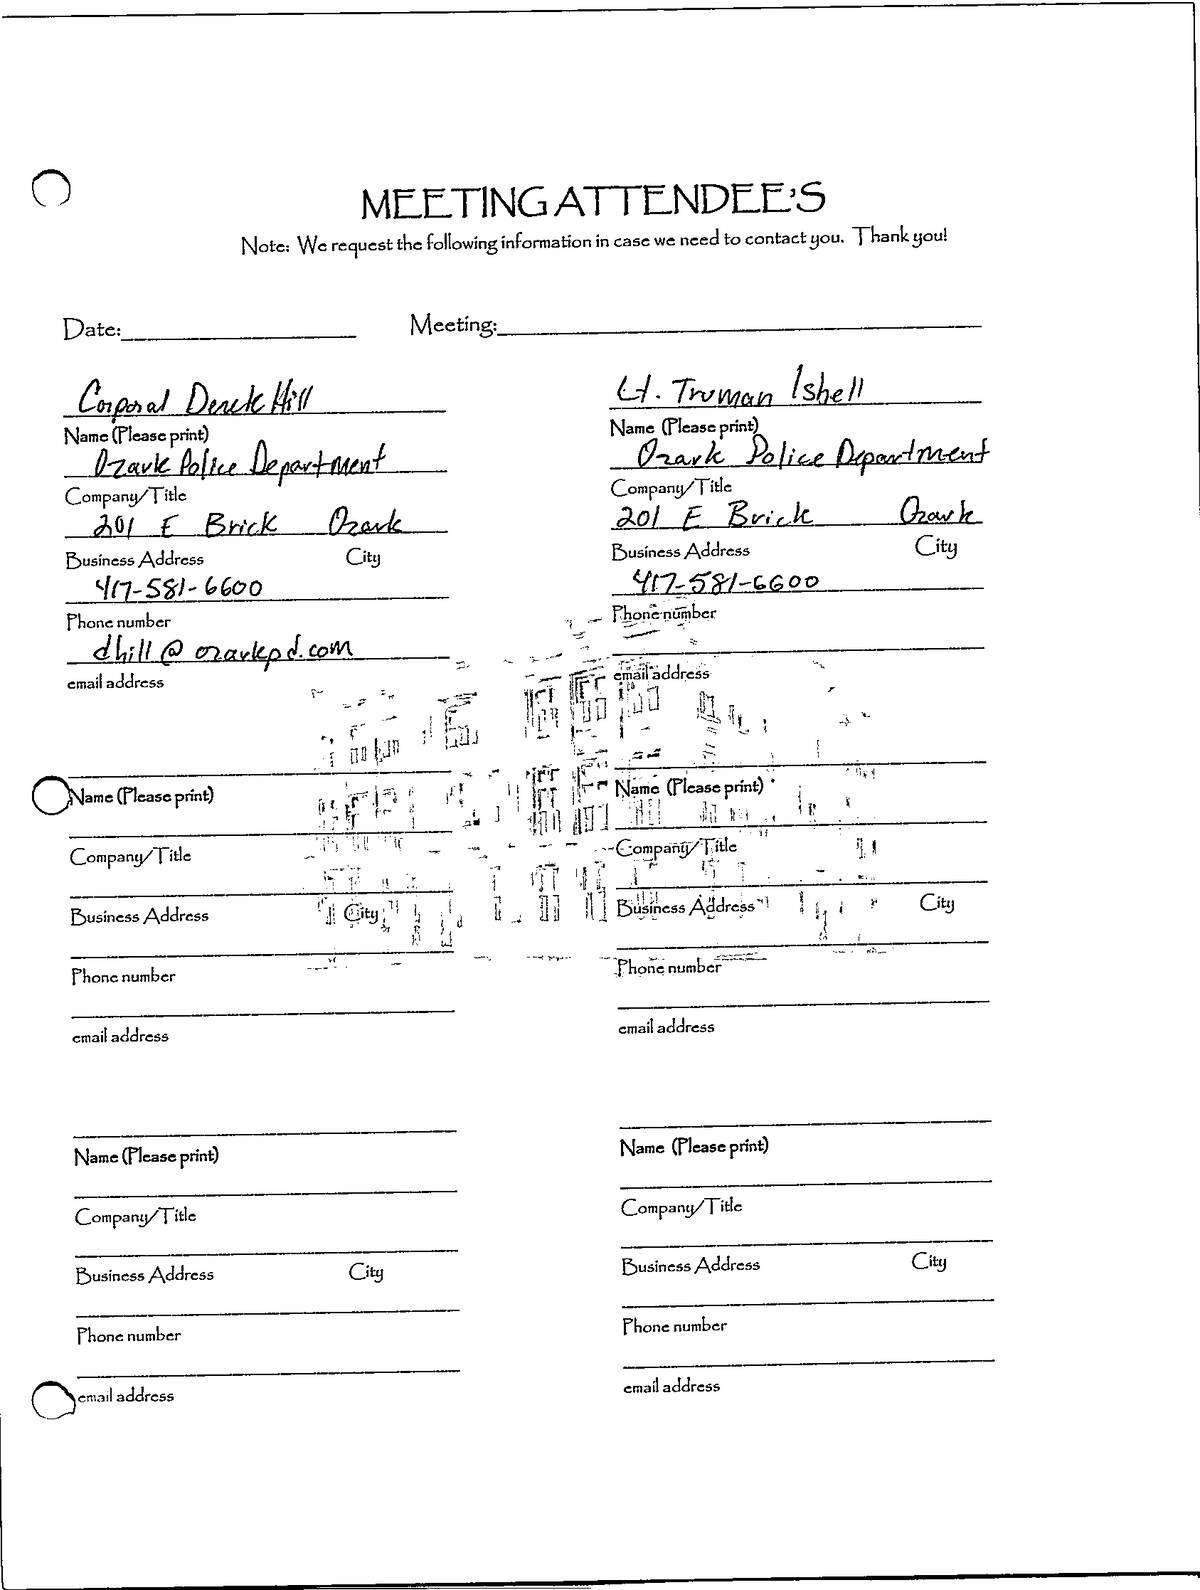 MEETING ATTENDEE'S
Note: We request the following information in case we need to contact you. Thank you!
Date: Meeting:
Corporal Derek Hill
Name (Please print)
Ozark Police Department
Company/Title
201 E Brick Ozark
Business Address City
417-581-6600
Phone number
dhill@ozarkpd.com
email address
Lt. Truman Isbell
Name (Please print)
Ozark Police Department
Company/Title
201 E Brick Ozark
Business Address City
417-581-6600
Phone number
email address
Name (Please print)
Company/Title
Business Address City
Phone number
email address
Name (Please print)
Company/Title
Business Address City
Phone number
email address
Name (Please print)
Company/Title
Business Address City
Phone number
email address
Name (Please print)
Company/Title
Business Address City
Phone number
email address